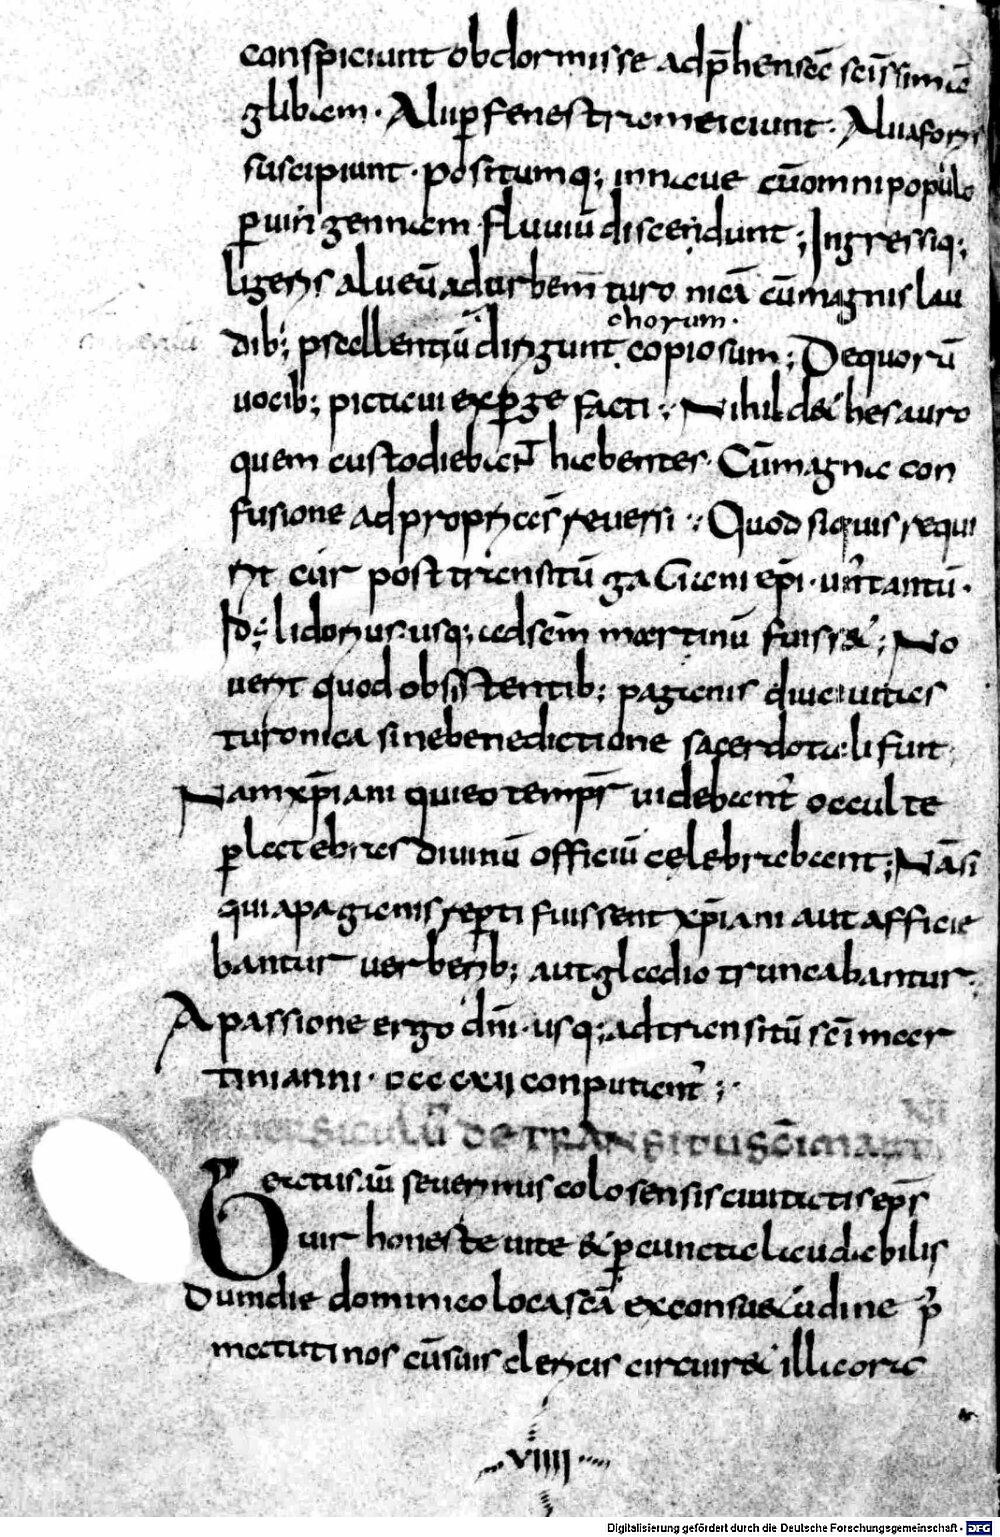 conspiciunt obdormisse adp̄hensā sc̄issimā
glibam. Alii ꝑ fenestram eiciunt. Alii aforis
suscipiunt. positumq; innaue cū omni populo
ꝑ uingennam fluuiū discendunt; Ingressiq;
ligeris alueū ad urbem turonicā cū magnis lau
dib; psallentiū dirigunt chorum. copiosum; De quorū
uocib; pictaui exꝑgefacti; Nihil de thesauro
quem custodiebant habentes. Cū magna con
fusione ad propria sꝫ reuersi; Quod si quis requi
rit cur post transitū gaciani ep̄i. un' tantū.
id; lidorius. usq; ad sc̄m martinū fuisset; No
uerit quod obsistentib; paganis diu ciuitas
turonica sine benedictione sacerdotali fuit
Nam xp̄iani qui eo tempr̄ uidebant' occulte
ꝑ latebras diuinū officiū celebrabant; Nā si
qui apaganis reꝑti fuissent xp̄iani aut afficie
bantur uerberib; aut gladio truncabantur;
A passione ergo dn̄i. usq; ad transitū sc̄i mar
tini anni. ccccxii conputant';
DE TRANSITU SC̄I MARTI
NI
Beatus. ū seuerinus colosensis ciuitatis ep̄s
uir honeste uite & ꝑ cuncta laudabilis
Dum die dominico loca sc̄a ex consuetudine p̄
matutinos cū suis clericis circuiret illa ora
viiii
Digitalisierung gefördert durch die Deutsche Forschungsgemeinschaft - DFG